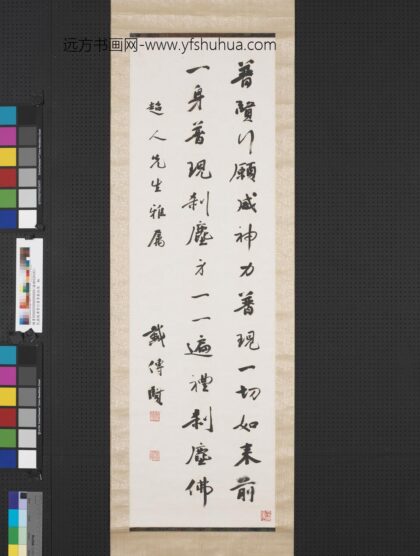 远方书画网-www.yfshuhua.com
普賢行願威神力普現一切如来前
一身普現剎塵方一一遍禮剎塵佛
超人先生雅属
戴傳賢